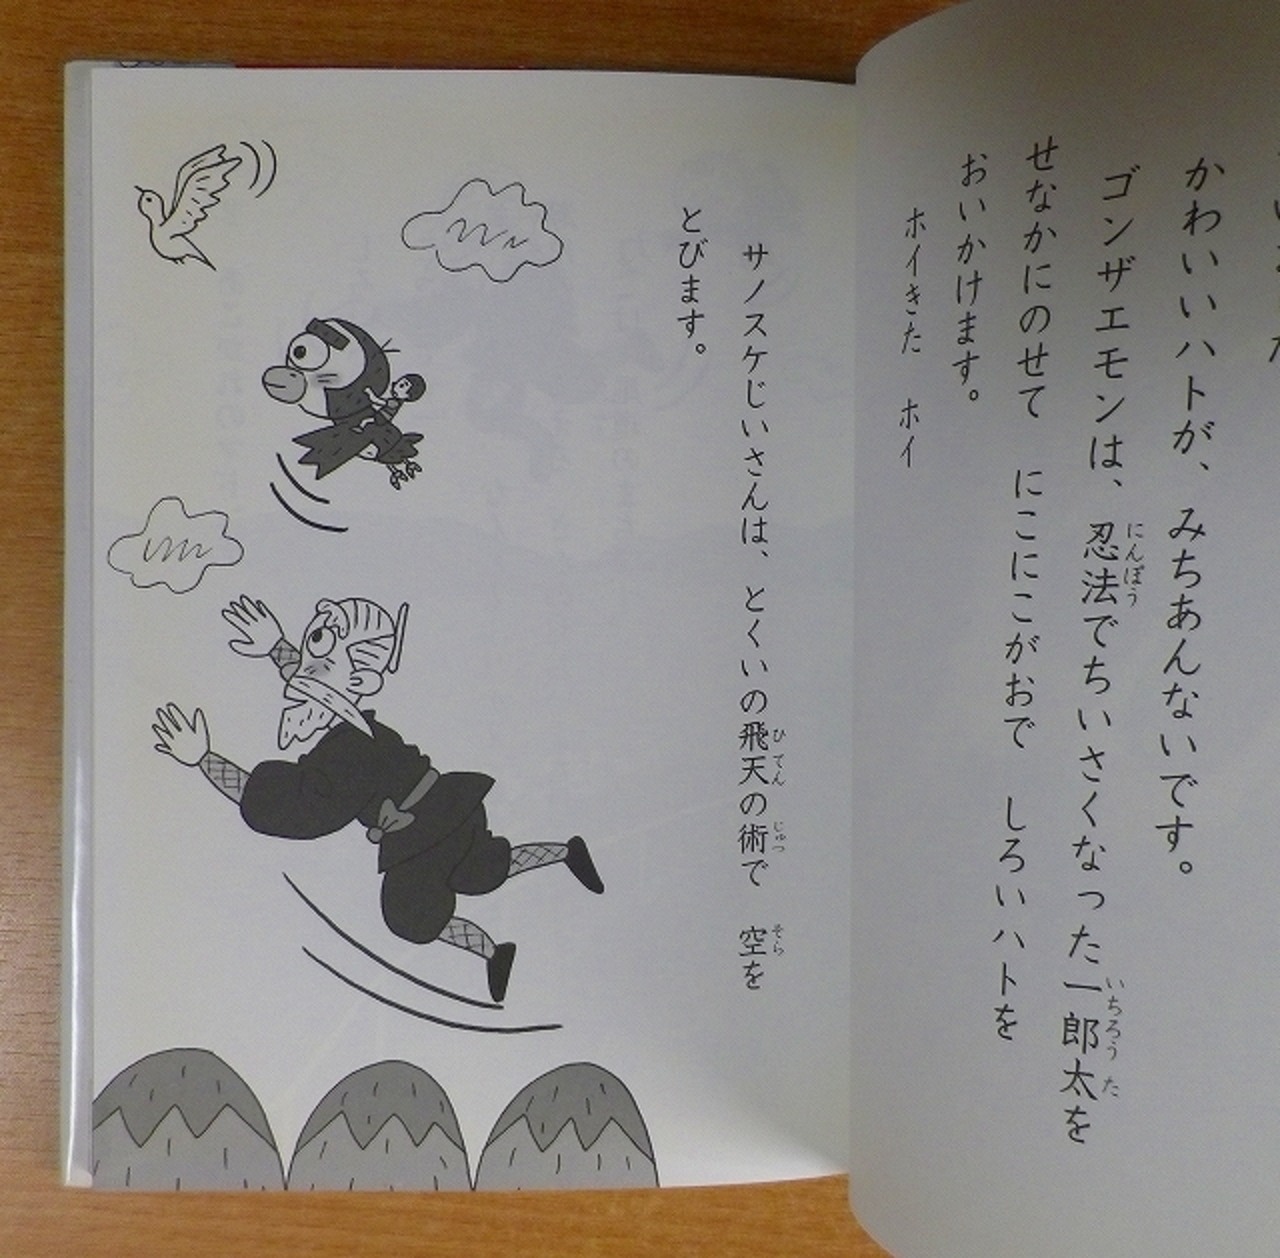 かわいいハトが、みちあんないです。
ゴンザエモンは、忍法でちいさくなった一郎太を
せなかにのせて にこにこがおで しろいハトを
おいかけます。
ホイきた ホイ
サノスケじいさんは、とくいの飛天の術で 空を
とびます。